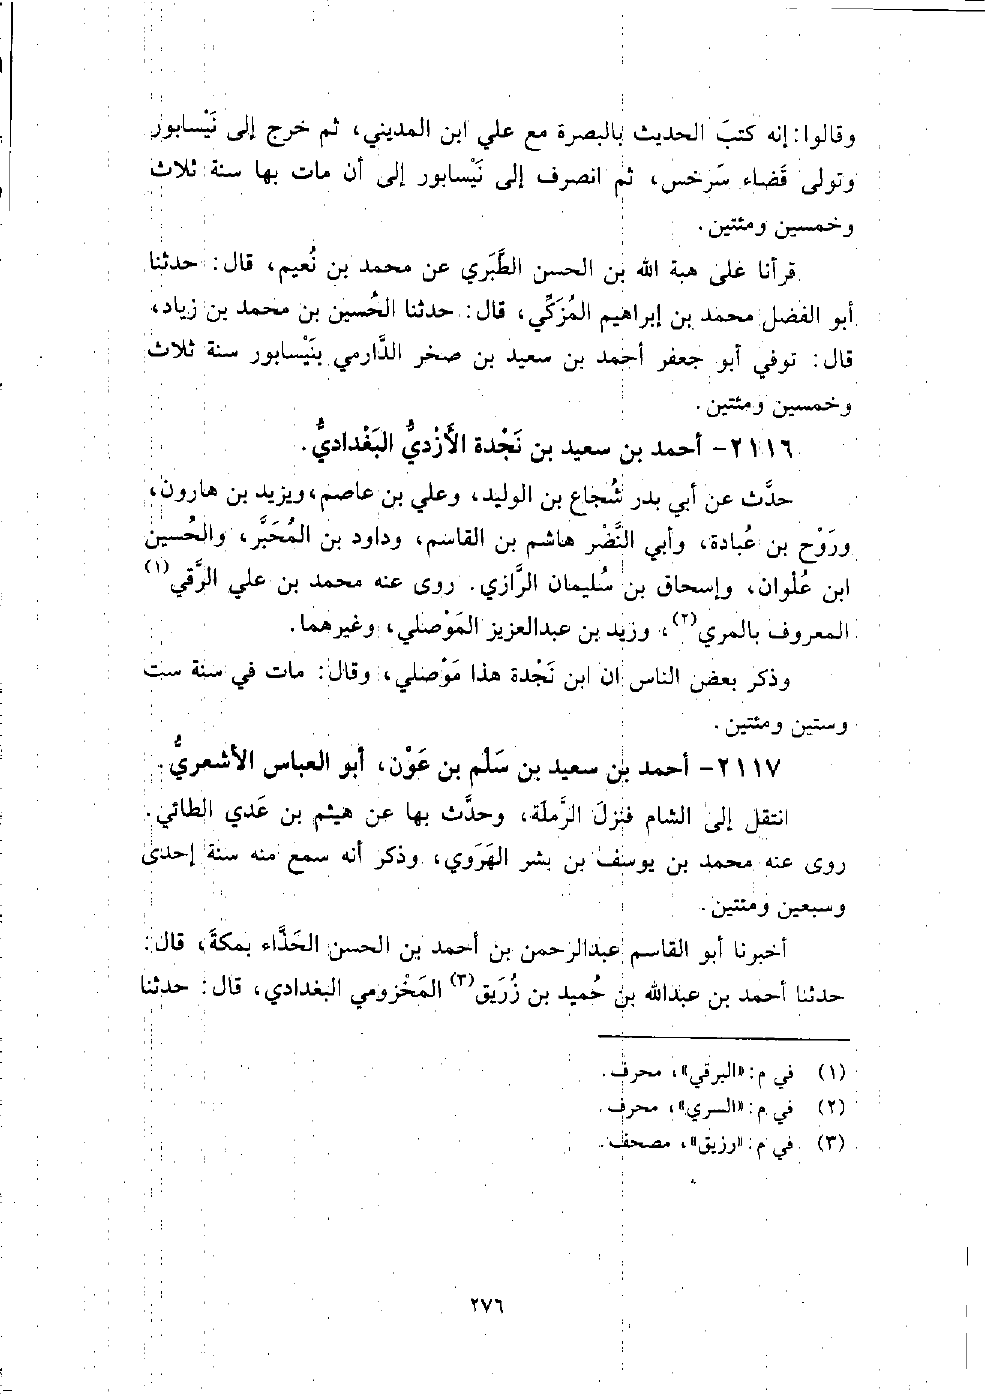 وقالوا: إنه كتبَ الحديث بالبصرة مع علي ابن المديني، ثم خرج إلى نَيْسابور
وتولى قَضاء سَرخس، ثم انصرف إلى نَيْسابور إلى أن مات بها سنة ثلاث
وخمسين ومئتين.
قرأنا على هبة الله بن الحسن الطَّبَري عن محمد بن نُعيم، قال: حدثنا
أبو الفضل محمد بن إبراهيم المُزَكِّي، قال: حدثنا الحُسين بن محمد بن زياد،
قال: توفي أبو جعفر أحمد بن سعيد بن صخر الدَّارمي بنَيْسابور سنة ثلاث
وخمسين ومئتين.
٢١١٦- أحمد بن سعيد بن نَجْدة الأَزْديُّ البَغْداديُّ.
حدَّث عن أبي بدر شُجاع بن الوليد، وعلي بن عاصم، ويزيد بن هارون،
ورَوْح بن عُبادة، وأبي النَّضْر هاشم بن القاسم، وداود بن المُحَبَّر، والحُسين
ابن عُلْوان، وإسحاق بن سُليمان الرَّازي. روى عنه محمد بن علي الرَّقي(١)
المعروف بالمري(٢)، وزيد بن عبدالعزيز المَوْصلي، وغيرهما.
وذكر بعض الناس ان ابن نَجْدة هذا مَوْصلي، وقال: مات في سنة ست
وستين ومئتين.
٢١١٧- أحمد بن سعيد بن سَلْم بن عَوْن، أبو العباس الأشعريُّ.
انتقل إلى الشام فنزلَ الرَّملة، وحدَّث بها عن هيثم بن عَدي الطائي.
روى عنه محمد بن يوسف بن بشر الهَرَوي، وذكر أنه سمع منه سنة إحدى
وسبعين ومئتين.
أخبرنا أبو القاسم عبدالرحمن بن أحمد بن الحسن الحَذَّاء بمكة، قال:
حدثنا أحمد بن عبدالله بن حُميد بن زُرَيق(٣) المَخْزومي البغدادي، قال: حدثنا
(١) في م: «البرقي»، محرف.
(٢) في م: «السري»، محرف.
(٣) في م: «رزيق»، مصحف.
٢٧٦